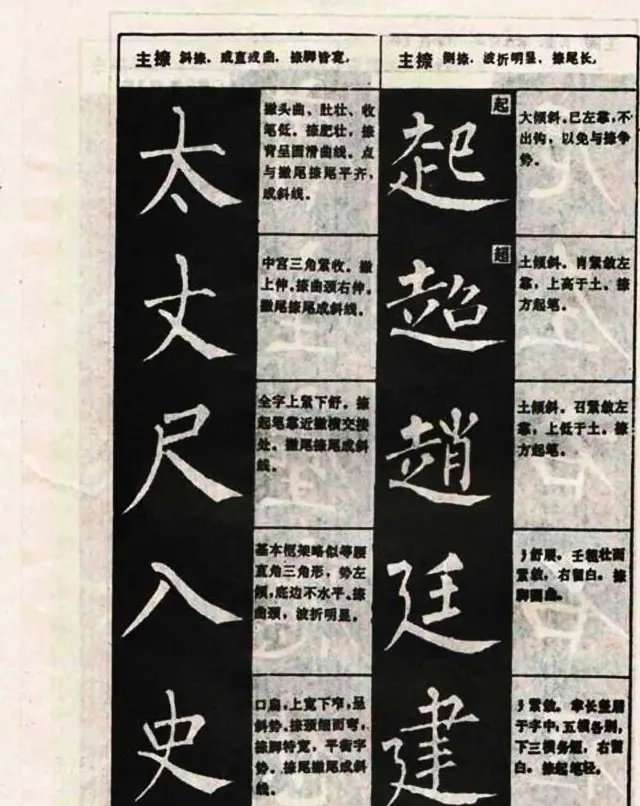 主捺 斜捺，或直或曲，捺脚皆宽。
太
撇头曲、肚壮、收
笔低。捺肥壮，捺
背呈圆滑曲线。点
与撇尾捺尾平齐，
成斜线。
丈
中宫三角紧收。撇
上伸。捺曲颈右伸。
撇尾捺尾成斜线。
尺
全字上紧下舒。捺
起笔靠近撇横交接
处。撇尾捺尾成斜
线。
入
基本框架略似等腰
直角三角形，势左
倾，底边不水平。捺
曲颈，波折明显。
史
口扁，上宽下窄，呈
斜势。捺颈细而弯，
捺脚特宽，平衡字
势。捺尾撇尾成斜
线。
主捺 倒捺，波折明显，捺尾长。
起
起
大倾斜。已左靠，不
出钩，以免与捺争
势。
超
超
土倾斜。肖紧敛左
靠，上高于土。捺
方起笔。
趙
土倾斜。召紧敛左
靠，上低于土。捺
方起笔。
廷
舒展，壬粗壮而
紧敛，右留白。捺
脚圆曲。
建
紧敛。聿长竖居
于字中，五横各别，
下三横务短，右留
白。捺起笔轻。